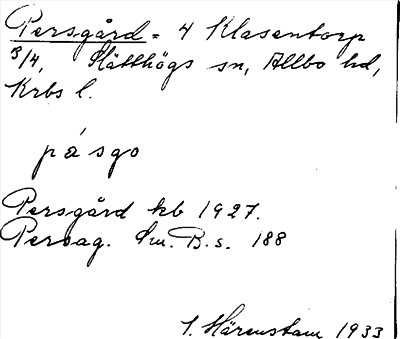 Persgård = 4 Klasentorp
3/4, Slätthögs sn, Allbo hd,
Krbs l.
på sgo
Persgård kb 1927.
Persag. Sm. B. s. 188
S. Härenstam 1933